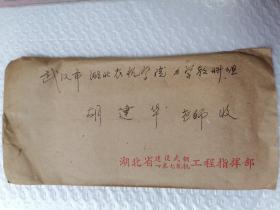 武汉市 湖北农机学院 力学教研组
胡建华 老师 收
湖北省建设武钢一米七轧机工程指挥部